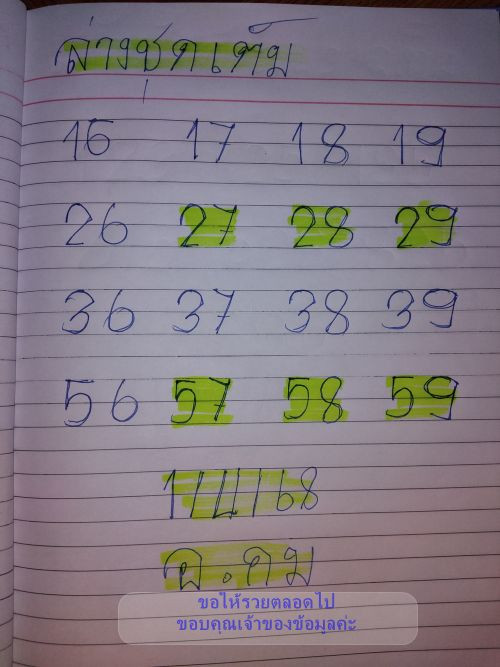 ล่างชุดเต็ม
16 17 18 19
26 27 28 29
36 37 38 39
56 57 58 59
1/11/68
อ.คม
ขอให้รวยตลอดไป
ขอบคุณเจ้าของข้อมูลค่ะ